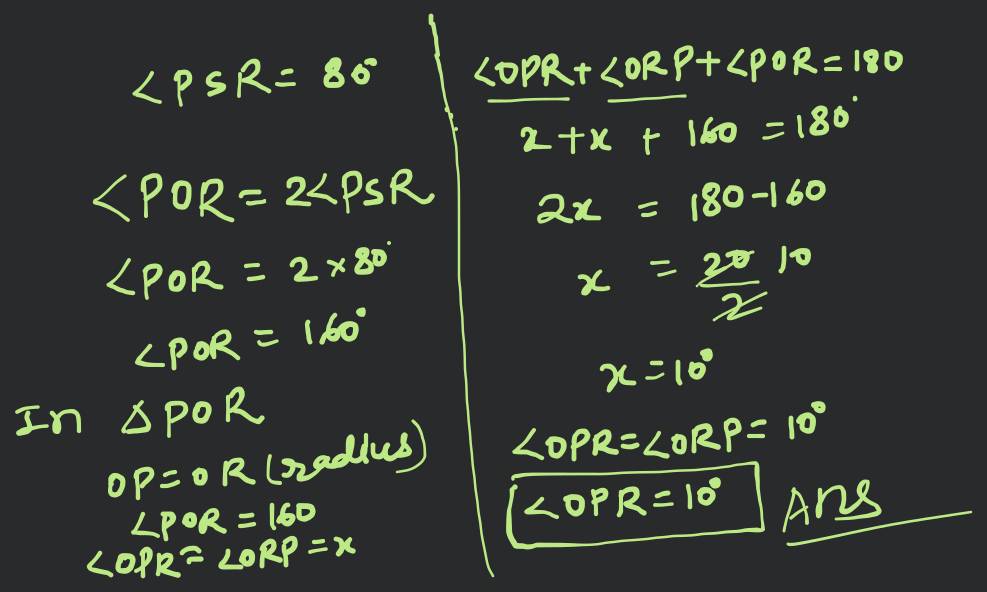 ∠PSR = 80°
∠POR = 2∠PSR
∠POR = 2 × 80°
∠POR = 160°
In △POR
OP = OR (radius)
∠POR = 160
∠OPR = ∠ORP = x
∠OPR + ∠ORP + ∠POR = 180
x + x + 160 = 180°
2x = 180 - 160
x = 20/2 10
x = 10°
∠OPR = ∠ORP = 10°
∠OPR = 10° Ans